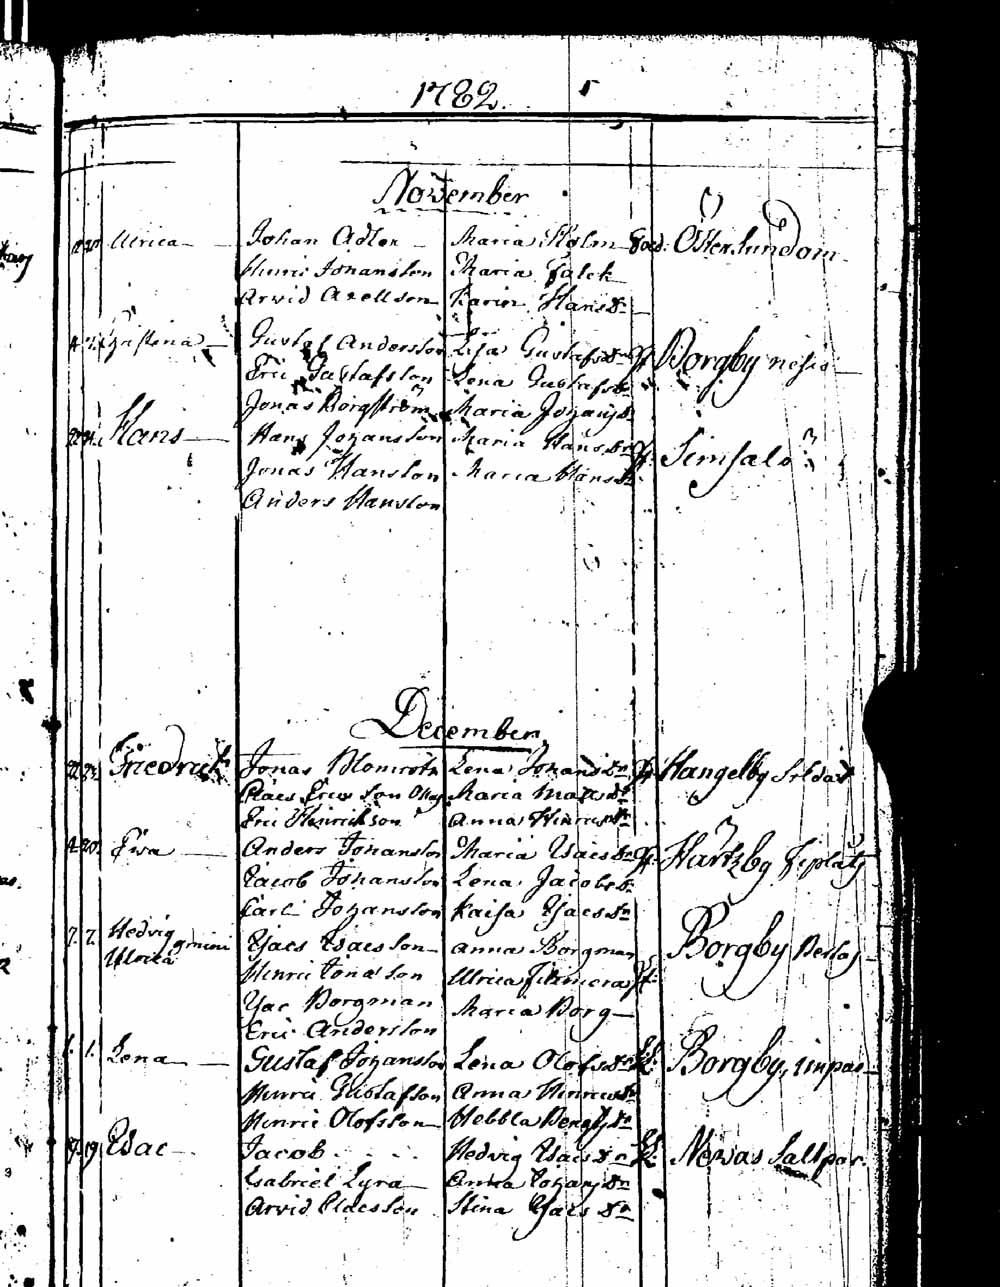 1782.
November
Ulrica Johan Adler Maria Holm Öster Sundom
Henric Johansson Maria Falck
Arvid Axellson Karin Hans dr
Christina Gustaf Andersson Lisa Gustafs dr Borgby
Eric Gustafsson Lena Gustafs dr
Jonas Borgström Maria Johans dr
Hans Hans Johansson Maria Hans dr Simsalö
Jonas Hansson Maria Hans dr
Anders Hansson
December
22. 23. Friedrich Jonas Blomroth Lena Johans dr Hangelby Soldat
Claes Ericsson Maria Matts dr
Eric Henrickson Anna Henrics dr
20. Ewa Anders Johansson Maria Isacs dr Hartzby
Jacob Johansson Lena Jacobs dr
Carl Johansson Kaisa Isacs dr
7. 7. Hedvig gmini Isacs Isacsson Anna Borgman Borgby
Ulrica
Henric Jonasson Ulrica
Isac Borgman Maria Borg
Eric Andersson
1. 1. Lena Gustaf Johansson Lena Olofs dr Borgby, inpar
Henric Gustafsson Anna Henrics dr
Henric Olofsson Hebbla Bengts dr
19 Isac Jacob Hedvig Isacs dr Nevas Saltpar.
Gabriel Lyra Anna Johans dr
Arvid Claesson Stina Isacs dr